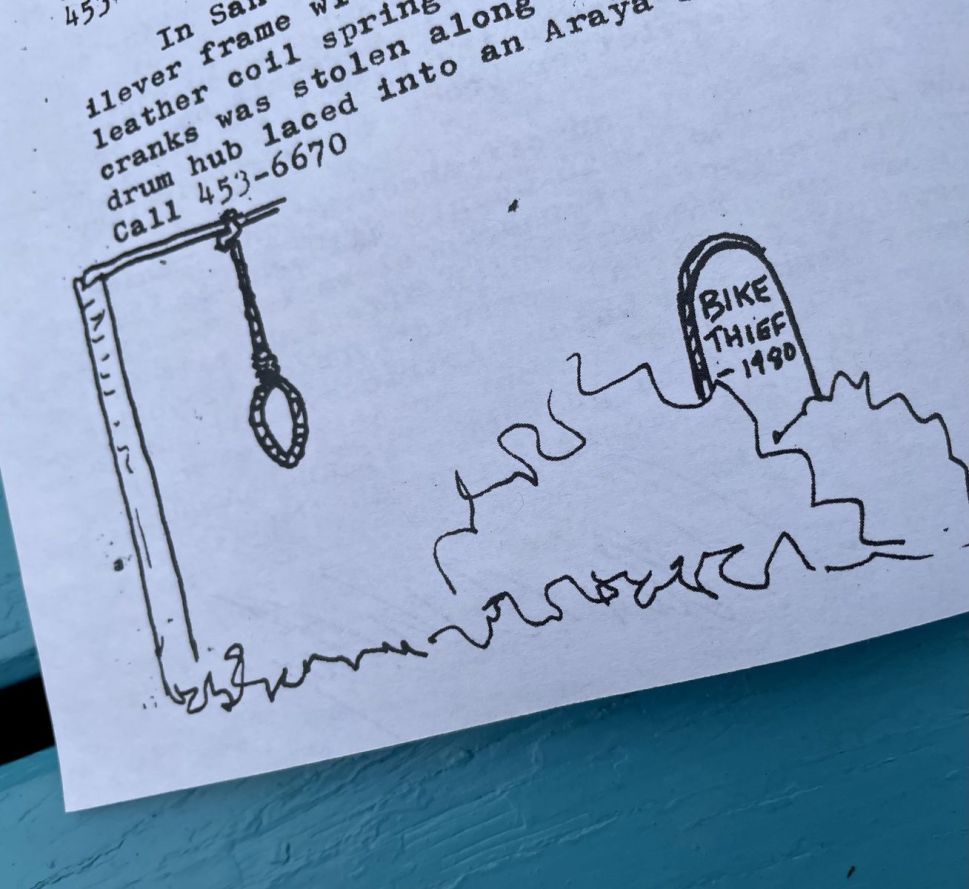 453
In San
ilever frame
leather coil spring
cranks was stolen along
drum hub laced into an Araya
Call 453-6670
BIKE
THIEF
-1980